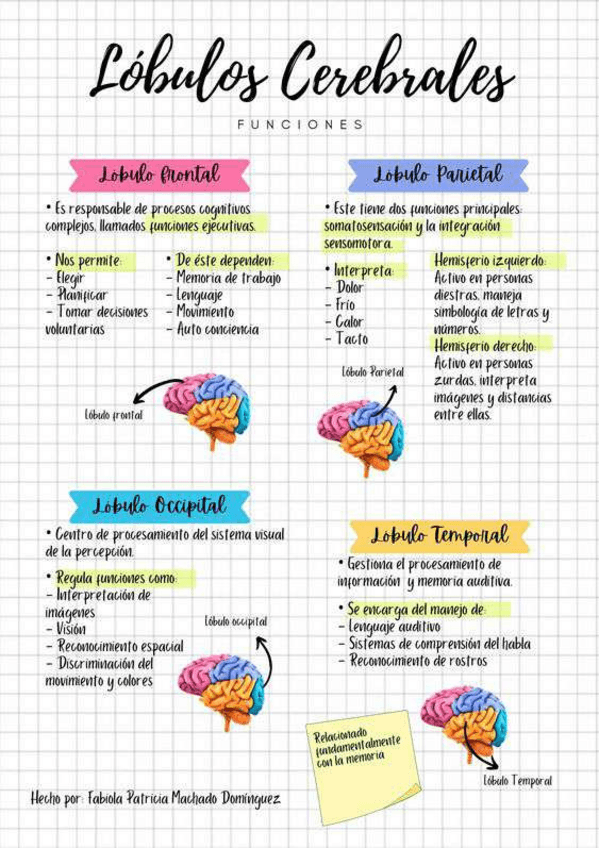 Lóbulos Cerebrales
FUNCIONES
Lóbulo frontal
• Es responsable de procesos cognitivos
complejos, llamados funciones ejecutivas.
• Nos permite:
- Elegir
- Planificar
- Tomar decisiones
voluntarias
• De éste dependen:
- Memoria de trabajo
- Lenguaje
- Movimiento
- Auto conciencia
Lóbulo frontal
Lóbulo Parietal
• Este tiene dos funciones principales:
somatosensación y la integración
sensomotora.
• Interpreta:
- Dolor
- Frío
- Calor
- Tacto
Hemisferio izquierdo:
Activo en personas
diestras, maneja
simbología de letras y
números.
Hemisferio derecho:
Activo en personas
zurdas, interpreta
imágenes y distancias
entre ellas.
Lóbulo Parietal
Lóbulo Occipital
• Centro de procesamiento del sistema visual
de la percepción.
• Regula funciones como:
- Interpretación de
imágenes
- Visión
- Reconocimiento espacial
- Discriminación del
movimiento y colores
Lóbulo occipital
Lóbulo Temporal
• Gestiona el procesamiento de
información y memoria auditiva.
• Se encarga del manejo de:
- Lenguaje auditivo
- Sistemas de comprensión del habla
- Reconocimiento de rostros
Relacionado
fundamentalmente
con la memoria
Lóbulo Temporal
Hecho por: Fabiola Patricia Machado Domínguez